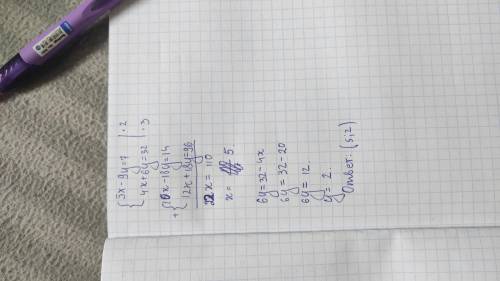 {5x-9y=7 | ·2
{4x+6y=32 | ·3
+{10x-18y=14
12x+18y=96
22x = 110
x = 5.
6y=32-4x
6y = 32-20
6y = 12.
y = 2.
Ответ: (5;2)